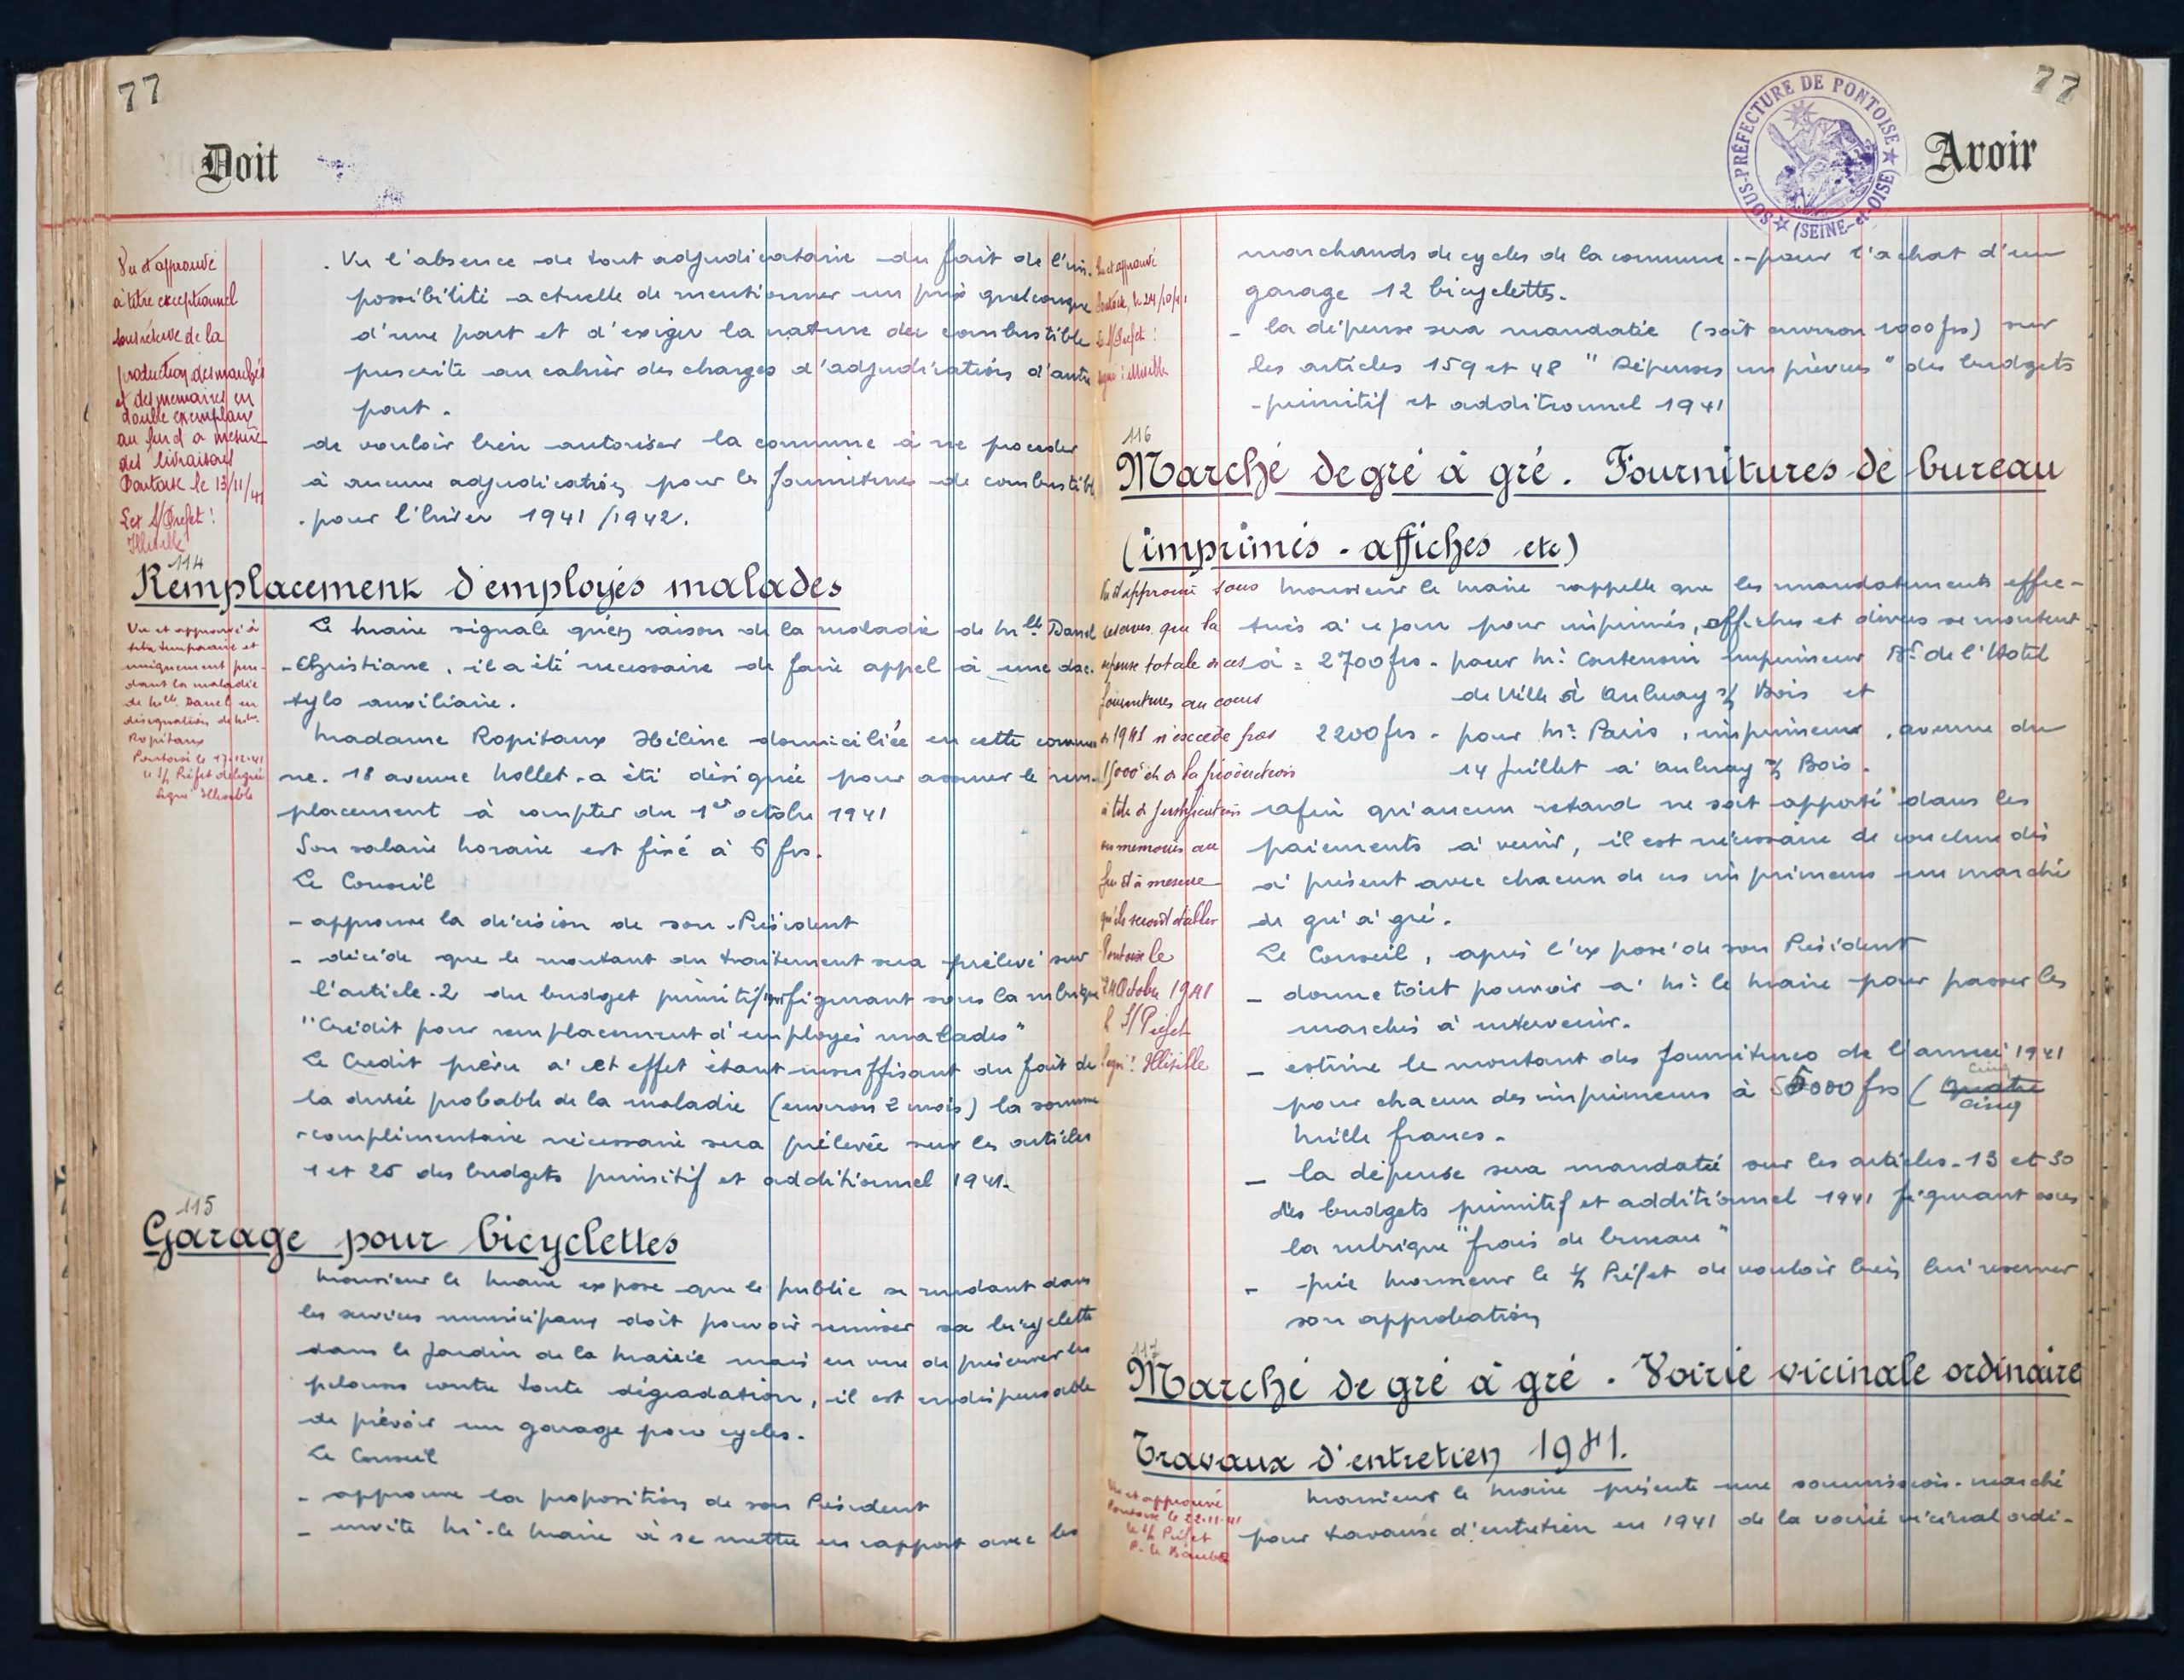 77
Doit
Vu et approuvé
à titre exceptionnel
sous réserve de la
production des marchés
et des mémoires en
double exemplaire
au fur et à mesure
des livraisons
Pontoise le 13/11/41
Le S/Préfet :
Illisible
. Vu l'absence de tout adjudicataire du fait de l'im-
possibilité actuelle de mentionner un prix quelconque
d'une part et d'exiger la nature du combustible
prescrite au cahier des charges d'adjudication d'autre
part.
de vouloir bien autoriser la commune à ne procéder
à aucune adjudication pour les fournitures de combustible
pour l'hiver 1941/1942.
114
Remplacement d'employés malades
Vu et approuvé à
titre temporaire et
uniquement pen-
dant la maladie
de Melle Danel en
désignation de Mme
Ropitaux
Pontoise le 17-12-41
le S/ Préfet délégué
signé Illisible
Le Maire signale qu'en raison de la maladie de Melle Danel
Christiane, il a été nécessaire de faire appel à une dac-
tylo auxiliaire.
Madame Ropitaux Hélène domiciliée en cette commu-
ne. 18 avenue Nollet a été désignée pour assurer le rem-
placement à compter du 1er octobre 1941
Son salaire horaire est fixé à 6 frs.
Le Conseil
- approuve la décision de son Président
- décide que le montant du traitement sera prélevé sur
l'article 2 du budget primitif 1941 figurant sous la rubrique
"Crédit pour remplacement d'employés malades"
Le Crédit prévu à cet effet étant insuffisant du fait de
la durée probable de la maladie (environ 2 mois) la somme
complémentaire nécessaire sera prélevée sur les articles
1 et 25 des budgets primitif et additionnel 1941.
115
Garage pour bicyclettes
Monsieur le Maire expose que le public se rendant dans
les services municipaux doit pouvoir remiser sa bicyclette
dans le jardin de la Mairie mais en vue de préserver les
pelouses contre toute dégradation, il est indispensable
de prévoir un garage pour cycles.
Le Conseil
- approuve la proposition de son Président
- invite Mr le Maire à se mettre en rapport avec les
77
SOUS-PRÉFECTURE DE PONTOISE
(SEINE-et-OISE)
Avoir
Vu et approuvé
Pontoise, le 24/10/41
Le S/Préfet :
signé : illisible
marchands de cycles de la commune - pour l'achat d'un
garage 12 bicyclettes.
- la dépense sera mandatée (soit environ 1000 frs) sur
les articles 159 et 48 "Dépenses imprévues" des budgets
primitif et additionnel 1941
116
Marché de gré à gré. Fournitures de bureau
(imprimés - affiches etc)
Vu et approuvé sous
réserves que la
dépense totale de ces
fournitures au cours
de 1941 n'excède pas
15000 et de la production
à titre de justification
des mémoires au
fur et à mesure
qu'ils seront établis
Pontoise le
24 Octobre 1941
le S/Préfet
signé : Illisible
Monsieur le Maire rappelle que les mandatements effec-
tués à ce jour pour imprimés, affiches et divers se montent
à = 2700 frs - pour Mr Coutenoin imprimeur Bd de l'Hotel
de Ville à Aulnay s/ Bois et
2200 frs - pour Mr Paris, imprimeur, avenue du
14 Juillet à Aulnay s/ Bois.
afin qu'aucun retard ne soit apporté dans les
paiements à venir, il est nécessaire de conclure dès
à présent avec chacun de ces imprimeurs un marché
de gré à gré.
Le Conseil, après l'exposé de son Président
- donne tout pouvoir à Mr le Maire pour passer les
marchés à intervenir.
- estime le montant des fournitures de l'année 1941
pour chacun des imprimeurs à 5000 frs (quatre cinq
cinq
Mille francs.
- la dépense sera mandatée sur les articles 13 et 30
des budgets primitif et additionnel 1941 figurant sous
la rubrique "frais de bureau"
- prie Monsieur le S/ Préfet de vouloir bien lui réserver
son approbation
117
Marché de gré à gré. Voirie vicinale ordinaire
Travaux d'entretien 1941.
Vu et approuvé
Pontoise le 22-11-41
le S/ Préfet
Monsieur le Maire présente une soumission-marché
pour travaux d'entretien en 1941 de la voirie vicinal ordi-